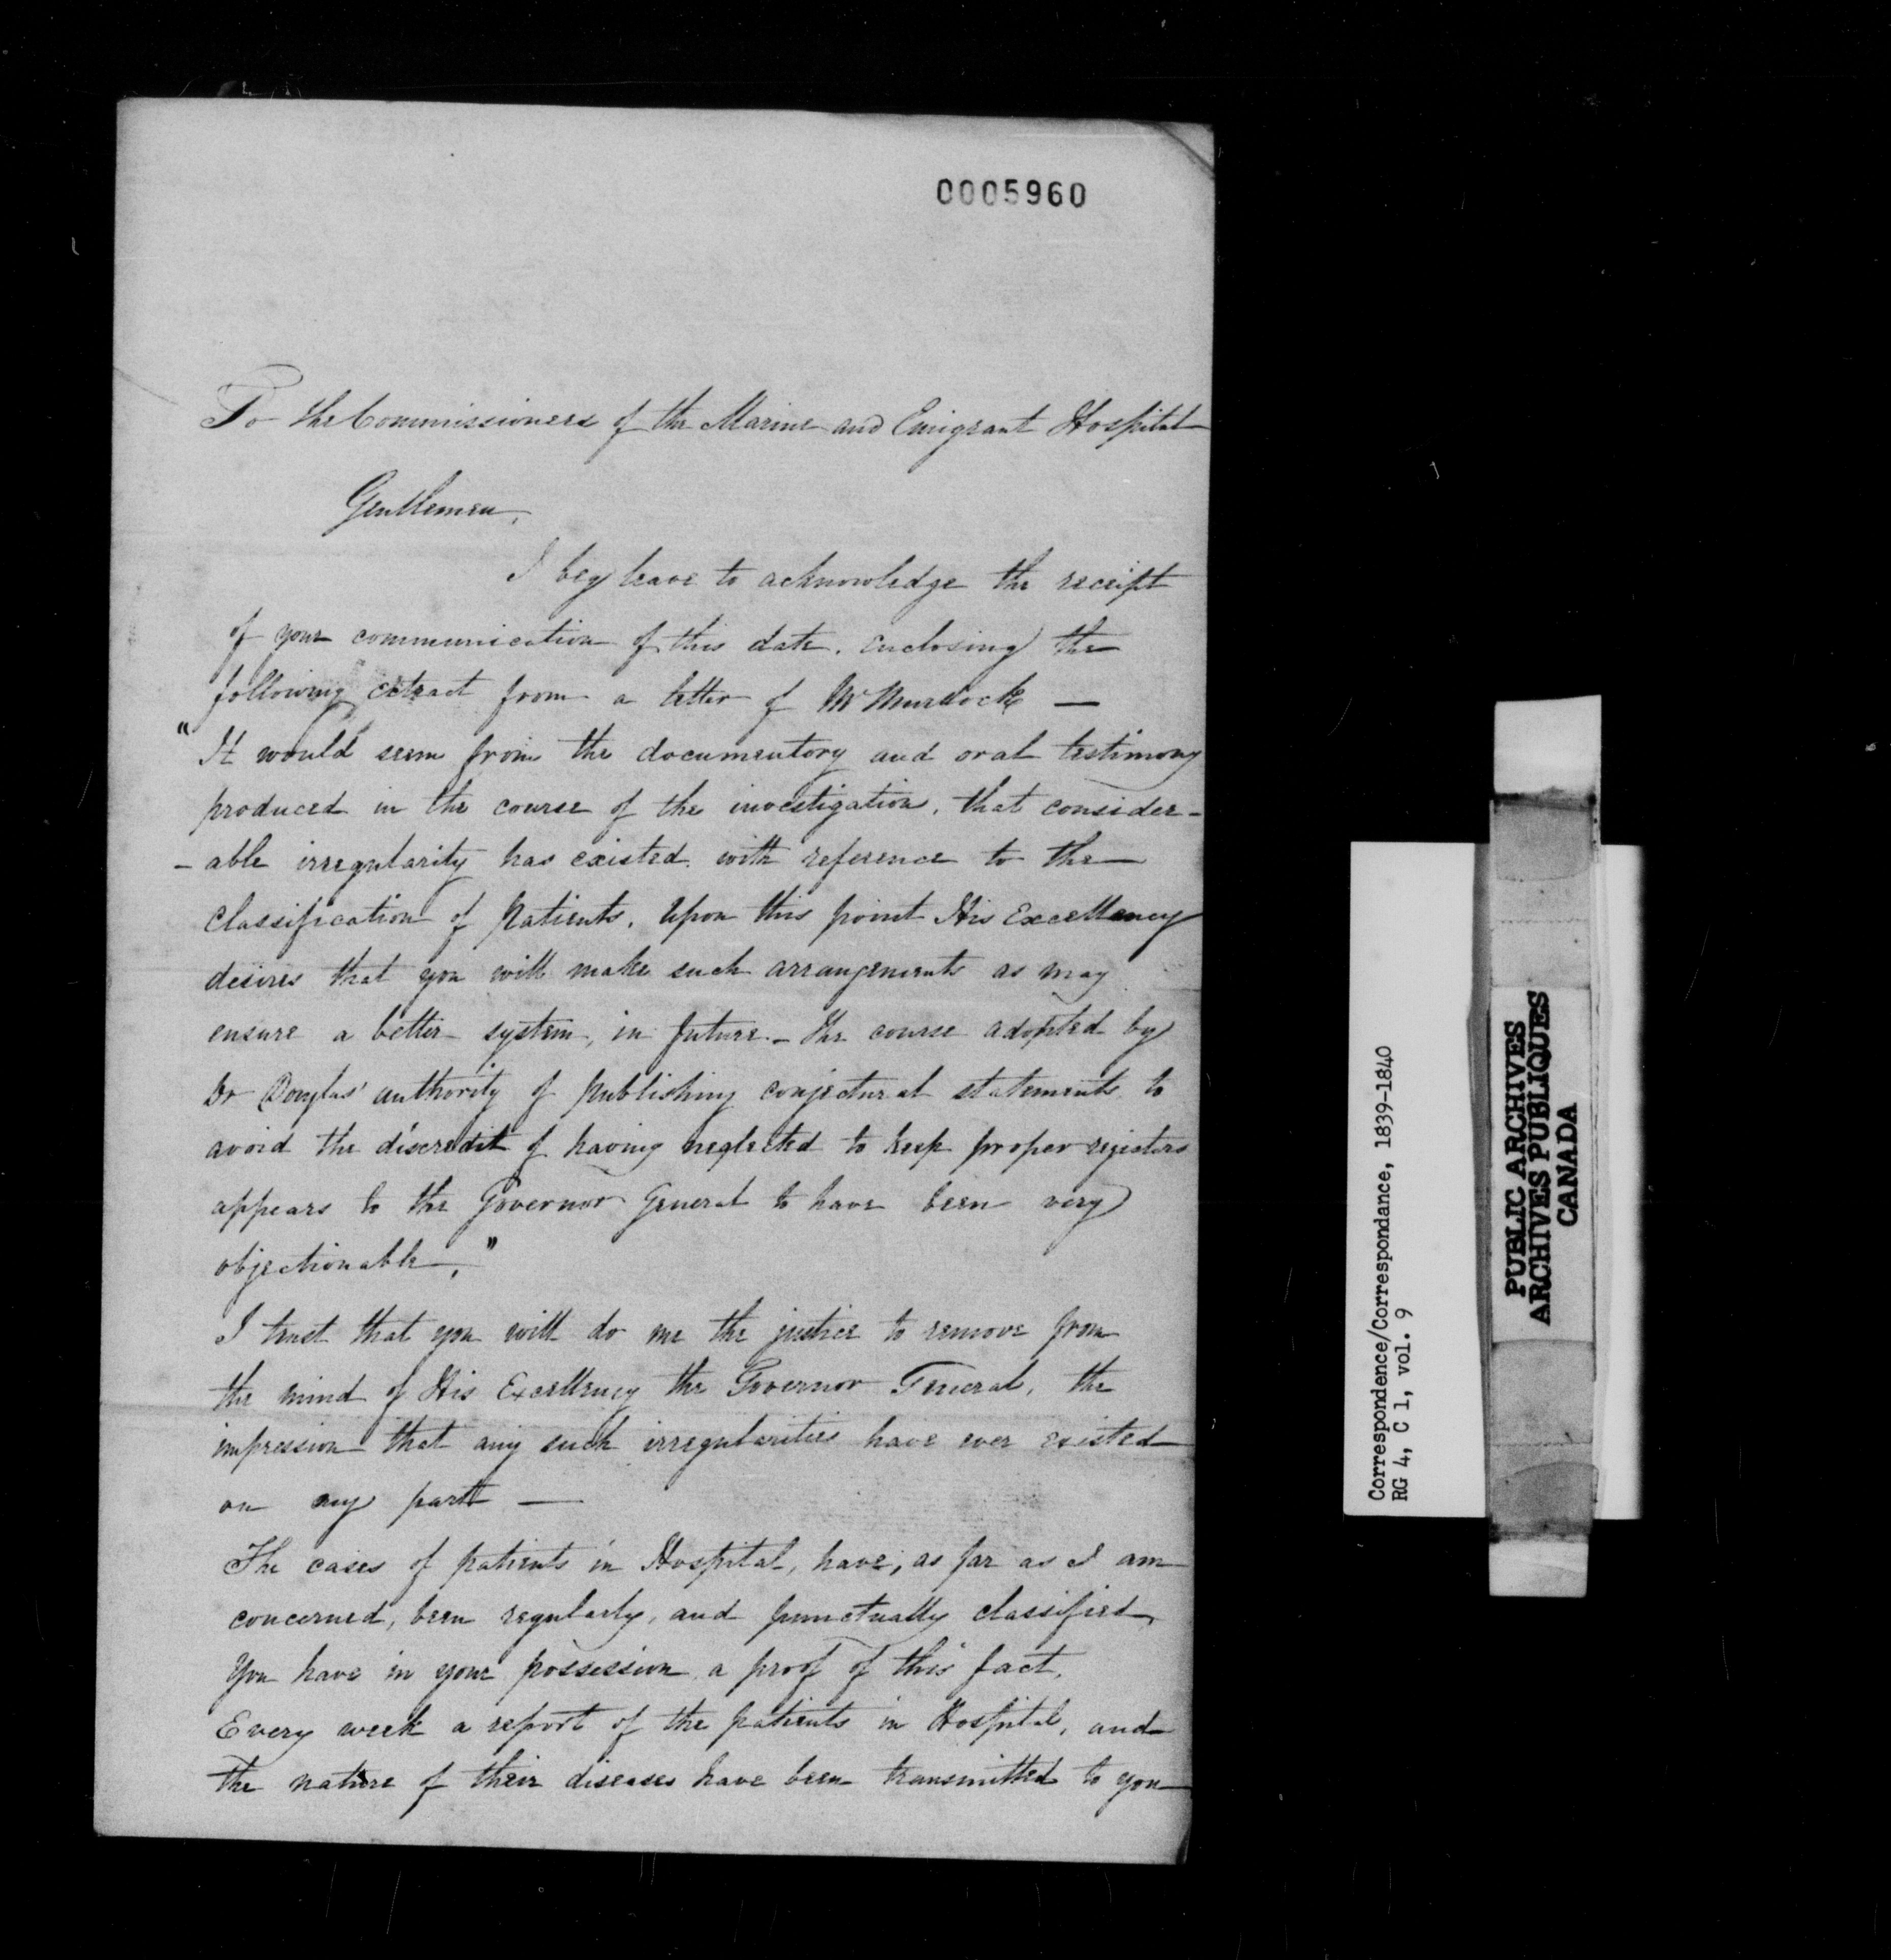 0005960
To the Commissioners of the Marine and Emigrant Hospital
Gentlemen,
I beg leave to acknowledge the receipt
of your communication of this date, enclosing the
following extract from a letter of Mr Murdock —
"It would seem from the documentory and oral testimony
produced in the course of the investigation, that consider-
- able irregularity has existed with reference to the
classification of patients. Upon this point His Excellency
desires that you will make such arrangements as may
ensure a better system, in future. - The course adopted by
Dr Douglas' authority of publishing conjectural statements to
avoid the discredit of having neglected to keep proper registers
appears to the Governor General to have been very
objectionable."
I trust that you will do me the justice to remove from
the mind of His Excellency the Governor General, the
impression that any such irregularities have ever existed
on my part —
The cases of patients in Hospital, have, as far as I am
concerned, been regularly, and punctually classified,
You have in your possession a proof of this fact.
Every week a report of the patients in Hospital, and
the nature of their diseases have been transmitted to you
Correspondence/Correspondance, 1839-1840
RG 4, C 1, vol. 9
PUBLIC ARCHIVES
ARCHIVES PUBLIQUES
CANADA